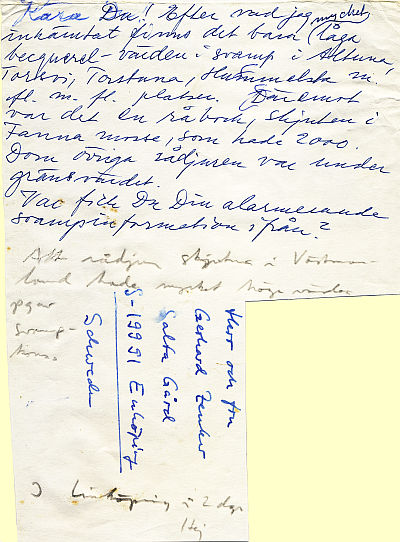 Kära Du! Efter vad jag mycket
inhämtat finns det bara (låga
becquerel-värden i svamp i Altuna,
Torsvi, Torstuna, Hummelsta m.
fl. m. fl. platser. Däremot
var det en råbock, skjuten i
Fanna mosse, som hade 2000.
Dom övriga rådjuren var under
gränsvärdet.
Var fick Du Din alarmerande
svampinformation ifrån?
Att rådjur skjutna i Västman-
land hade mycket höga värden
pgar
svamp-
Herr och fru
Gerhard
Salta Gård
S-199 91 Enköping
Schweden
Linköping i 2 dgr
Hej